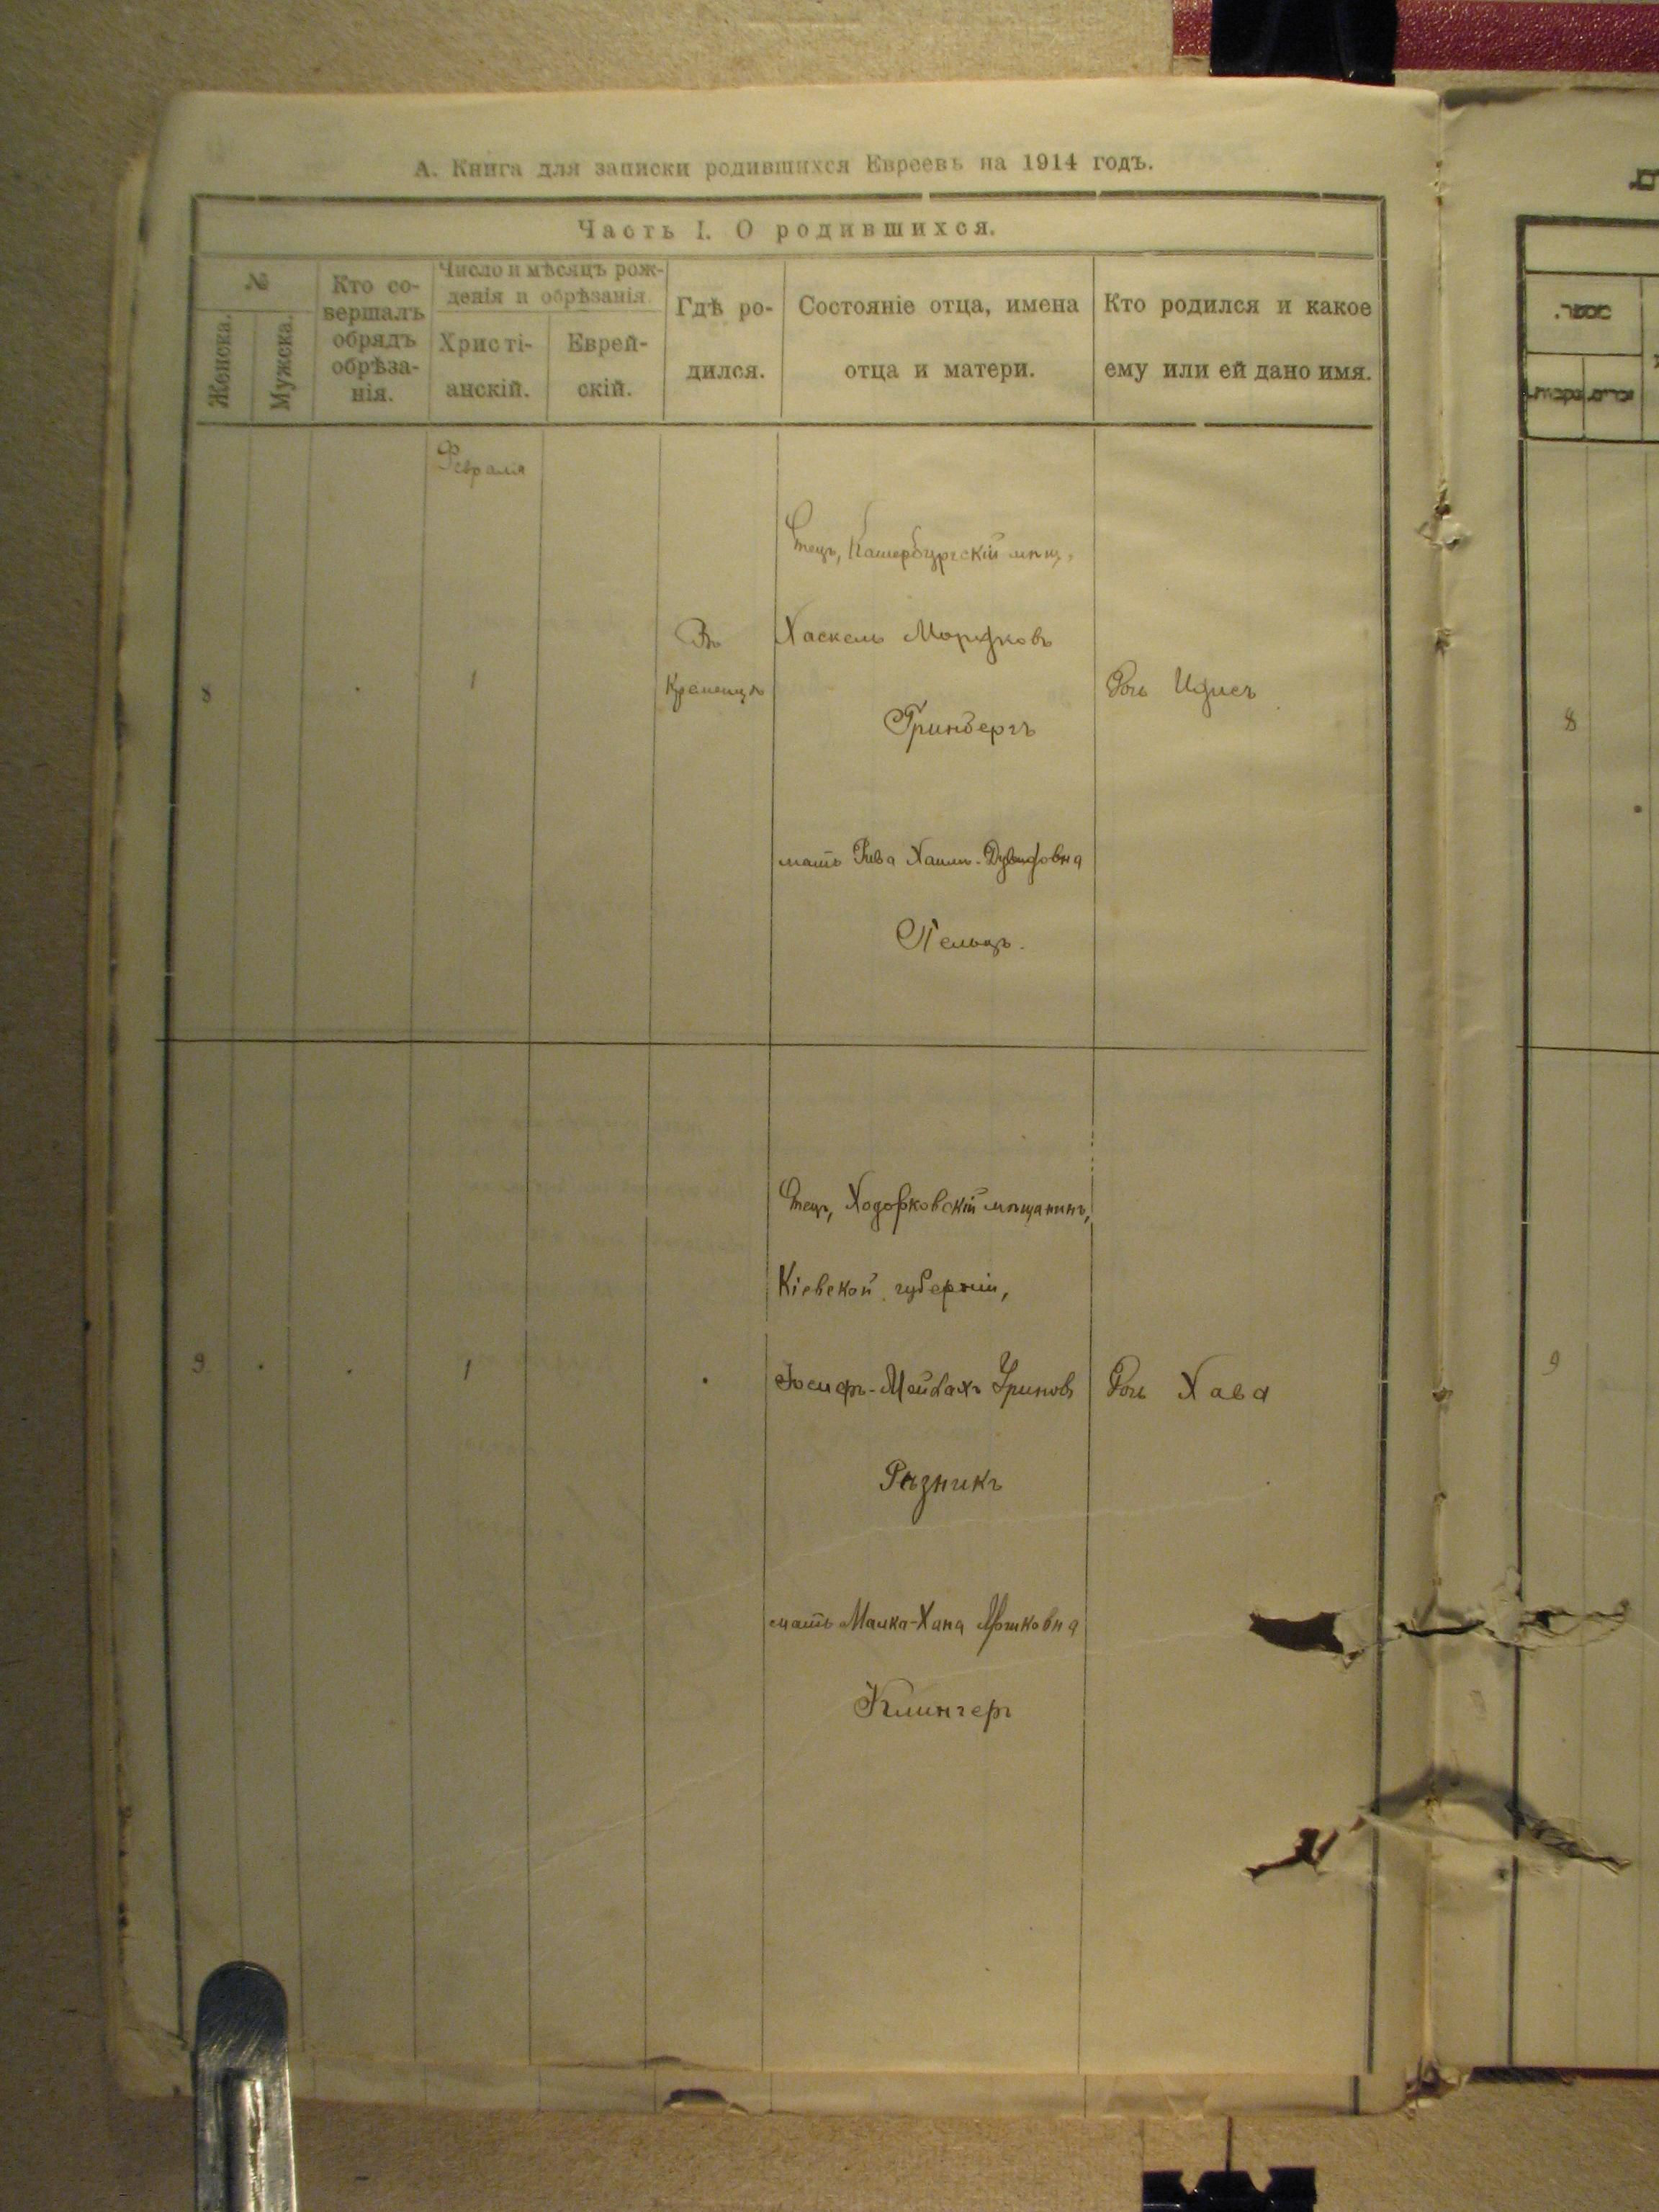 А. Книга для записки родившихся Евреевъ на 1914 годъ.
Часть I. О родившихся.
№
Женска.
Мужска.
Кто со-
вершалъ
обрядъ
обрѣза-
нія.
Число и мѣсяцъ рож-
денія и обрѣзанія.
Христі-
анскій.
Еврей-
скій.
Гдѣ ро-
дился.
Состояніе отца, имена
отца и матери.
Кто родился и какое
ему или ей дано имя.
Февраля
8
1
Въ
Кременцѣ
Отецъ, Катербургскій мѣщ.,
Хаскель Мордковъ
Гринбергъ
мать Рива Хаимъ-Дувидовна
Пельцъ.
Дочь
8
9
1
Отецъ, Ходорковскій мѣщанинъ,
Кіевской губерніи,
Іосифъ- Уриновъ
Рѣзникъ
мать Малка-Хана Мошковна
Клингеръ
Дочь Хава
9